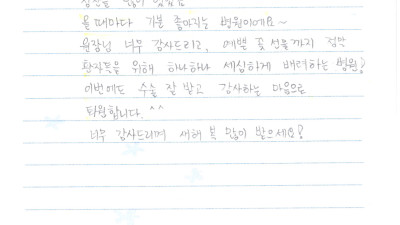 올 때마다 기분 좋아지는 병원이에요~
원장님 너무 감사드리고, 예쁜 꽃 선물까지 정말
환자들을 위해 하나하나 세심하게 배려하는 병원!
이번에도 수술 잘 받고 감사하는 마음으로
퇴원합니다. ^^
너무 감사드리며 새해 복 많이 받으세요!